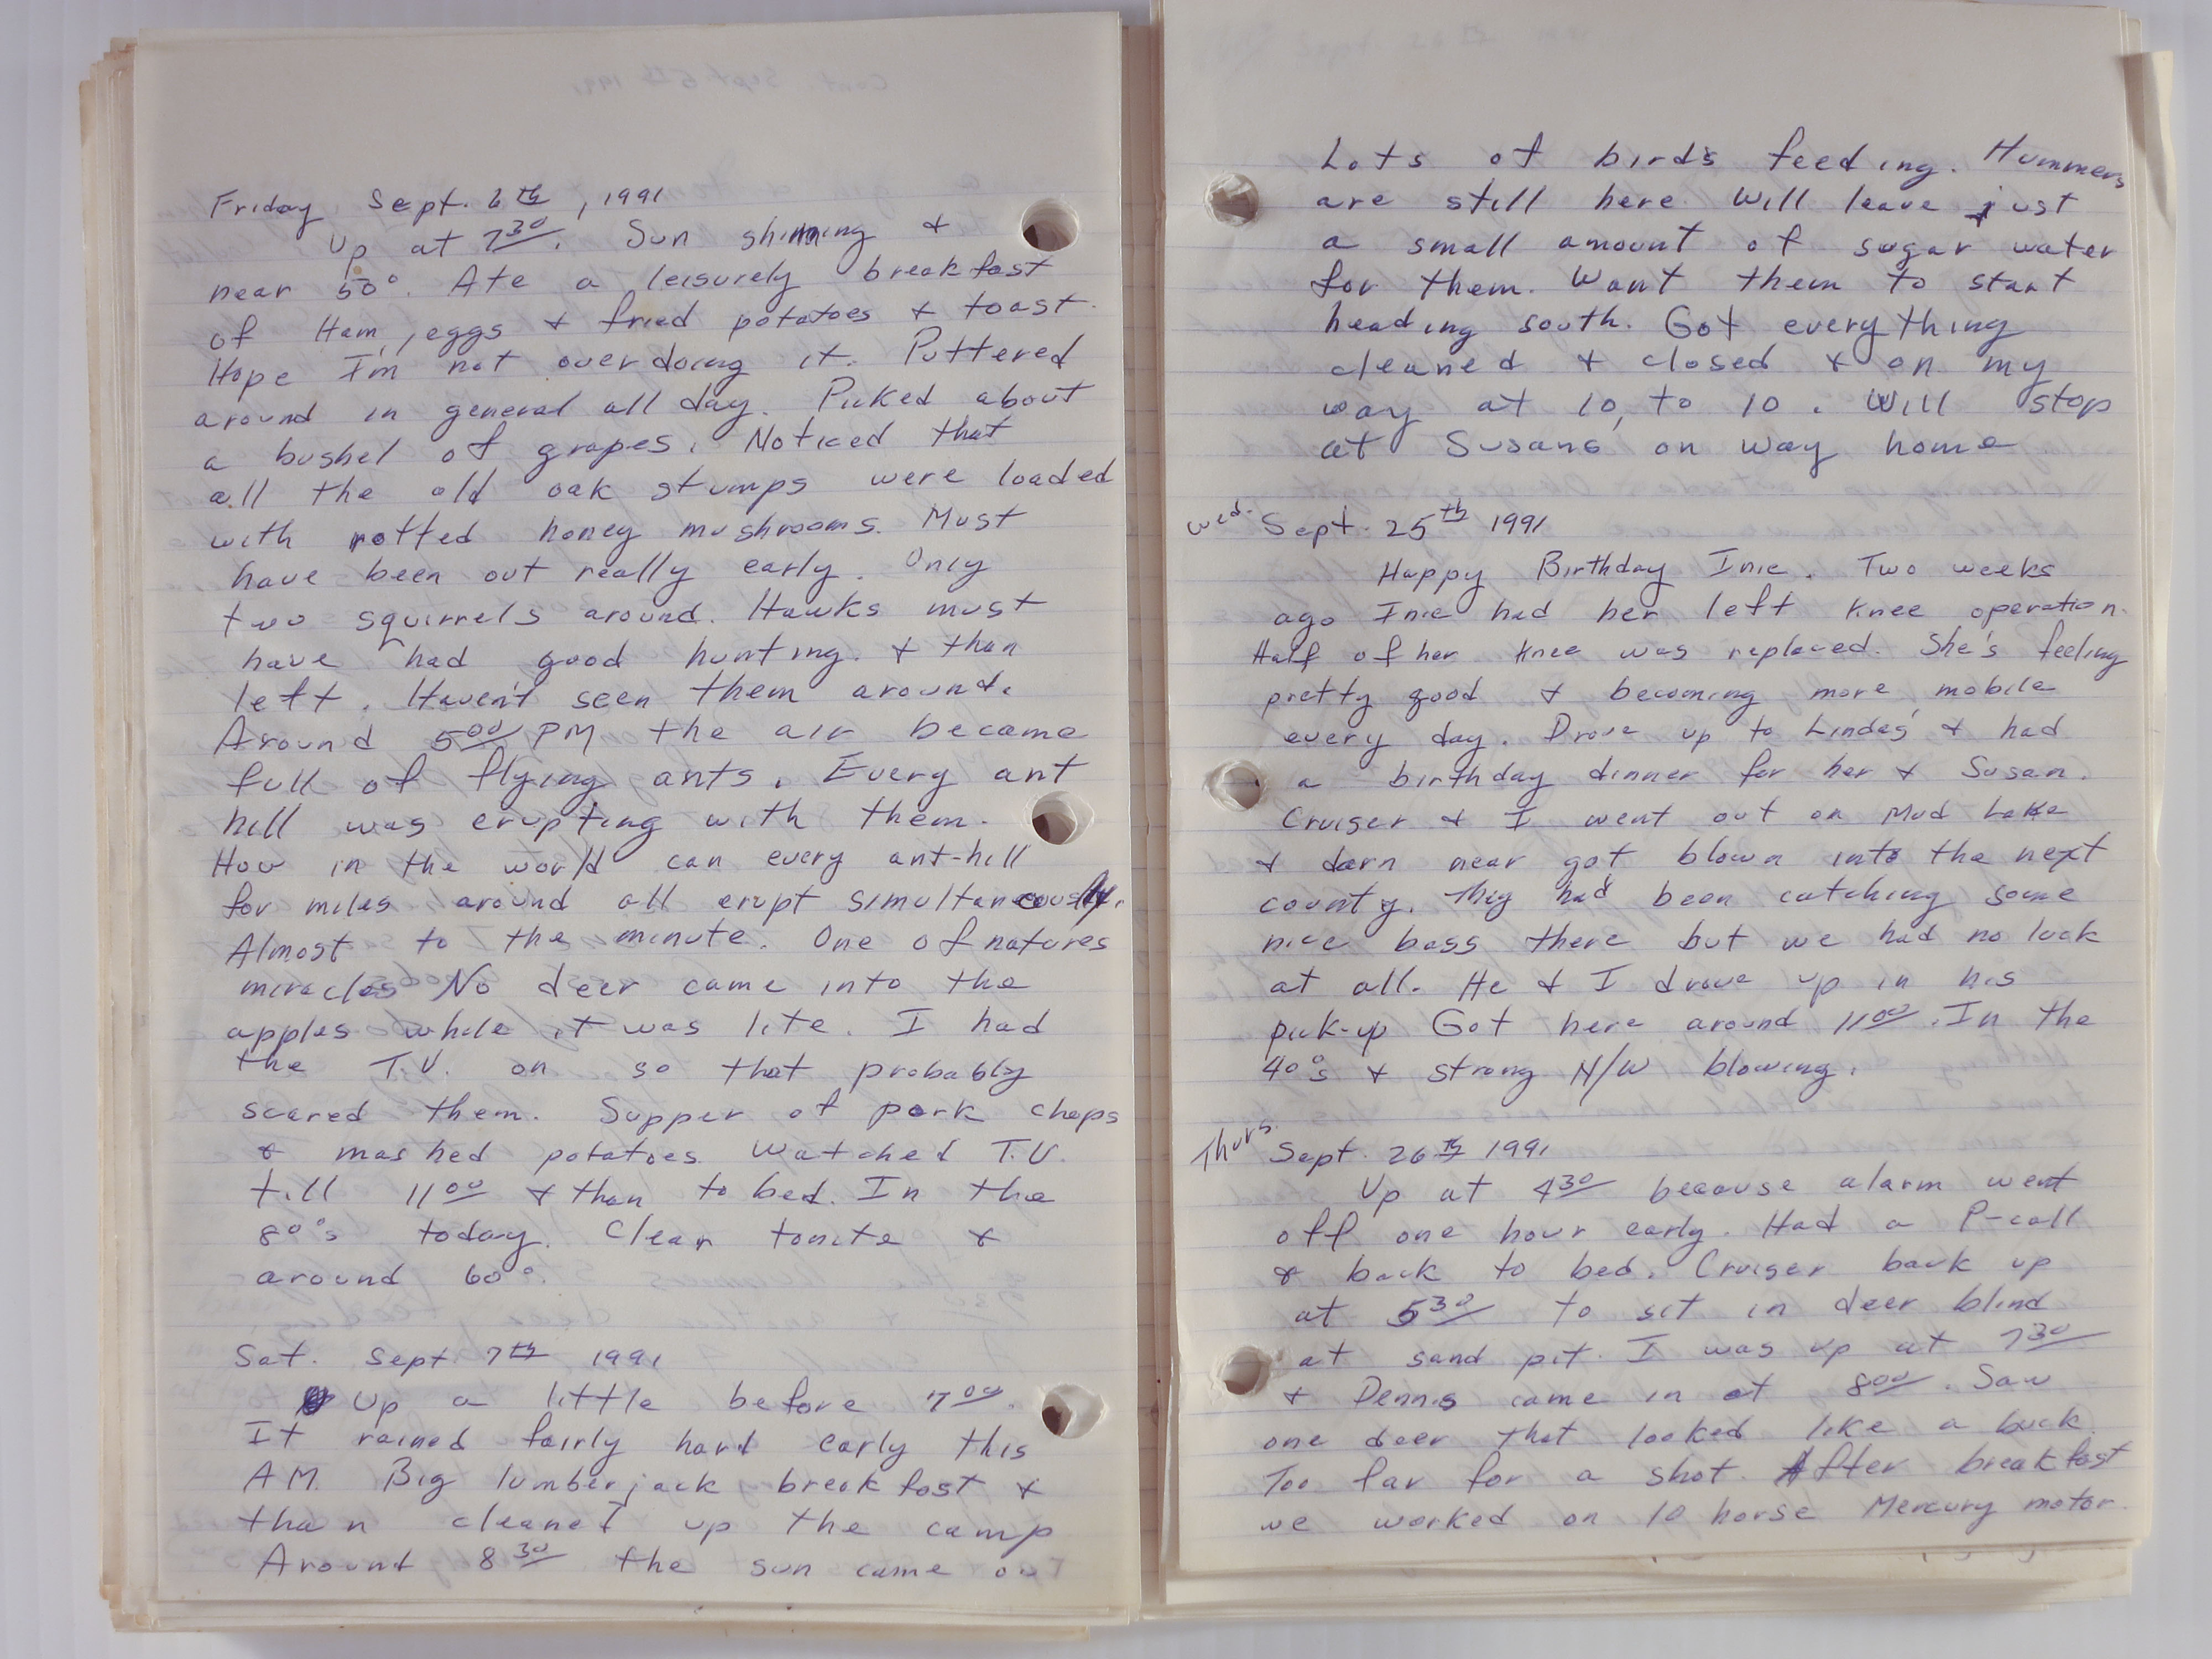 Friday Sept. 6th, 1991
Up at 7 30. Sun shinning &
near 50°. Ate a leisurely breakfast
of Ham, eggs & fried potatoes & toast.
Hope I'm not over doing it. Puttered
around in general all day. Picked about
a bushel of grapes. Noticed that
all the old oak stumps were loaded
with rotted honey mushrooms. Must
have been out really early. Only
two squirrels around. Hawks must
have had good hunting. & than
left. Haven't seen them around.
Around 5 00 PM the air became
full of flying ants. Every ant
hill was erupting with them.
How in the world can every ant-hill
for miles around all erupt simultaneously.
Almost to the minute. One of natures
miracles No deer came into the
apples while it was lite. I had
the T.V. on so that probably
scared them. Supper of pork chops
& mashed potatoes. Watched T.V.
till 11 00 & than to bed. In the
80°s today. Clear tonite &
around 60°.
Sat. Sept 7th 1991
Up a little before 7 00.
It rained fairly hard early this
AM. Big lumberjack breakfast &
than cleaned up the camp
Around 8 30 the sun came out
Lots of birds feeding. Hummers
are still here. Will leave just
a small amount of sugar water
for them. Want them to start
heading south. Got everything
cleaned & closed & on my
way at 10 to 10. Will stop
at Susans on way home
Wed. Sept. 25th 1991
Happy Birthday Inie. Two weeks
ago Inie had her left knee operation.
Half of her knee was replaced. She's feeling
pretty good & becoming more mobile
every day. Drove up to Lindas' & had
a birthday dinner for her & Susan.
Cruiser & I went out on Mud Lake
& darn near got blown into the next
county. They had been catching some
nice bass there but we had no luck
at all. He & I drove up in his
pick-up Got here around 11 00. In the
40°s & strong N/W blowing.
Thurs. Sept. 26th 1991
Up at 4 30 because alarm went
off one hour early. Had a P-call
& back to bed. Cruiser back up
at 5 30 to sit in deer blind
at sand pit. I was up at 7 30
& Dennis came in at 8 00. Saw
one deer that looked like a buck
Too far for a shot. After breakfast
we worked on 10 horse Mercury motor.